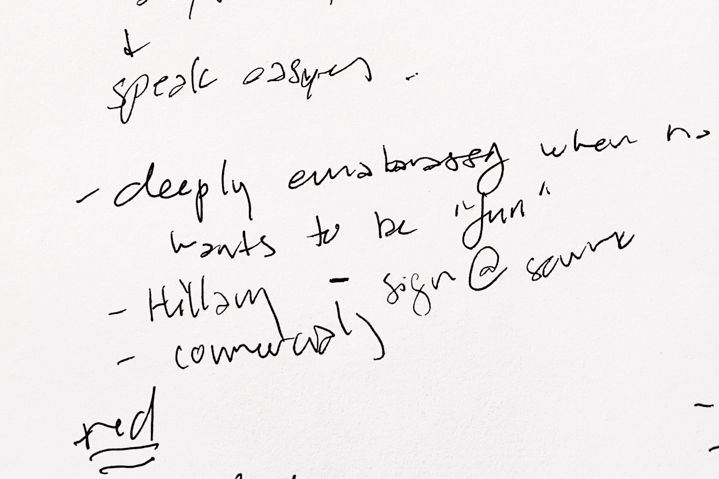 ↓
speak easyes .
- deeply embarassing when no
wants to be "fun"
- Hillary - sign @ source
- commercials
red